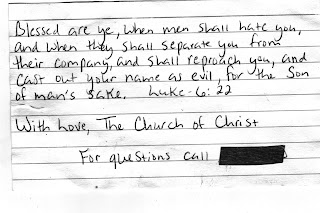 Blessed are ye, when men shall hate you,
and when they shall separate you from
their company, and shall reproach you, and
cast out your name as evil, for the Son
of man's sake. Luke 6:22
With Love, The Church of Christ
For questions call